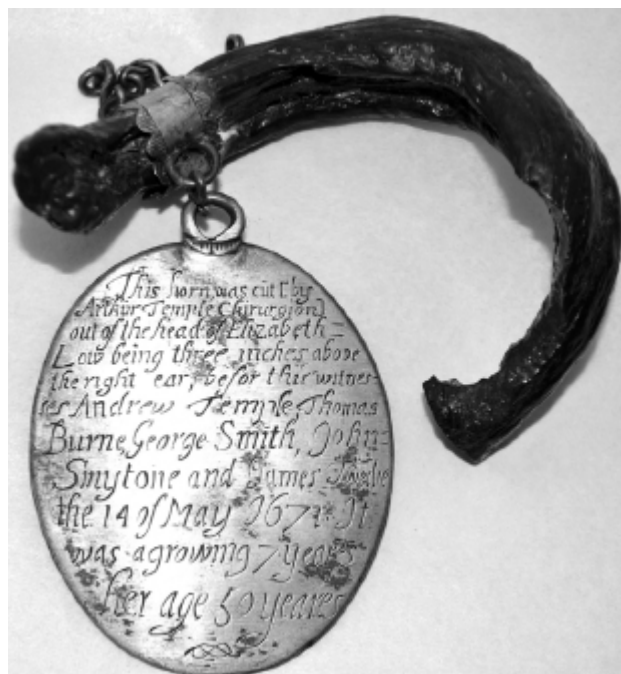 This horn was cutt by
Arthur Temple Chirurgion
out of the head of Elizabeth =
Low being three inches above
the right ear, befor thir witnes-
ses Andrew Temple, Thomas
Burne, George Smith, John-
Smytone and James
the 14 of May 1671 It
was agrowing 7 yeares
her age 50 yeares